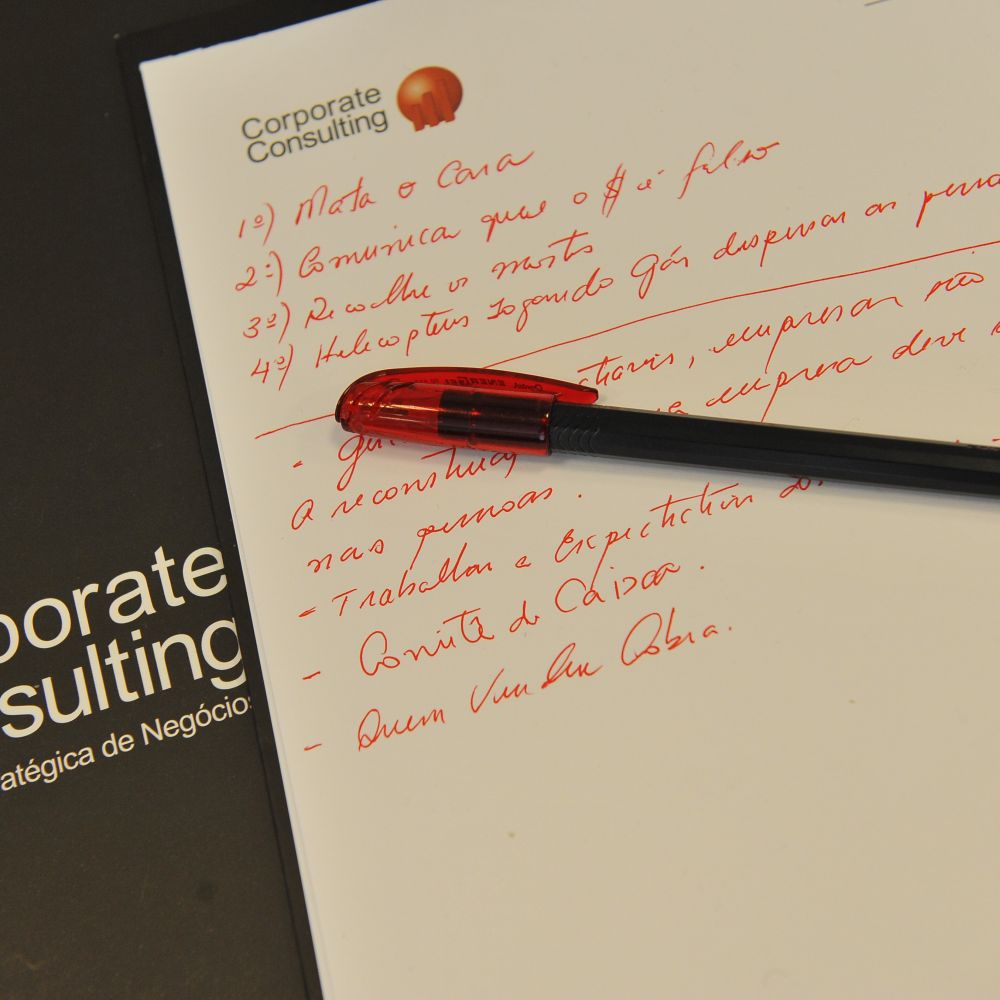 Corporate
Consulting
1º) Mata o Cara
2º) Comunica que o $ é falso
3º) Recolhe os mortos
4º) Helicopteros jogando gás dispersar as pessoa
empresas não
a empresa deve
A reconstruç
nas pessoas.
- Trabalhar a Expectation
- Comitê de Caixa.
- Quem Vender Cobra.
porate
sulting
atégica de Negócios
Pentel ENERGEL